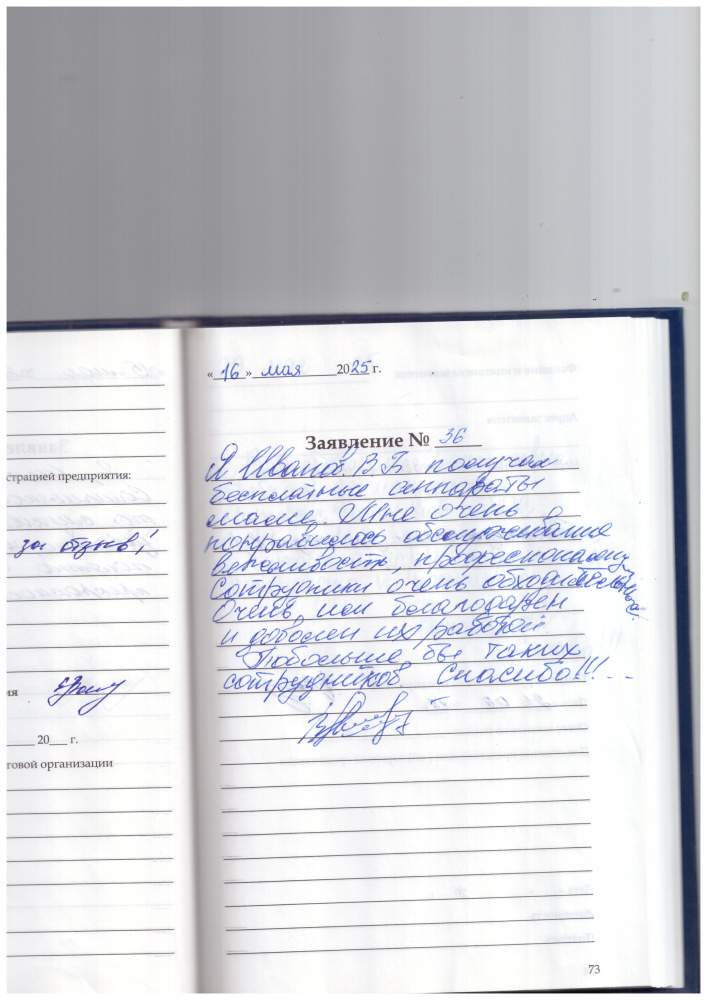 « 16 » мая 2025 г.
Заявление № 36
Я Иванов В Г получал
бесплатные аппараты
маме. Мне очень
понравилось обслуживание
вежливость, профессионализм
Сотрудники очень обходительные.
Очень им благодарен
и доволен их работой
Побольше бы таких
сотрудников Спасибо!!!...
73
страцией предприятия:
за отзыв!
ия
20 г.
говой организации